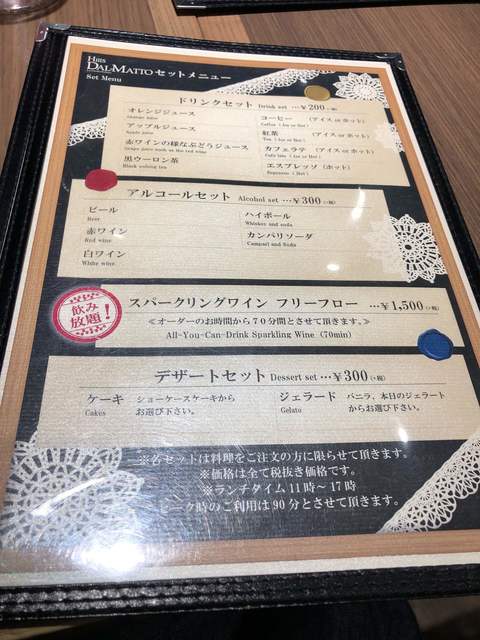 HILLS
DAL-MATTO セットメニュー
Set Menu
ドリンクセット Drink set …￥200(+税)
オレンジジュース
Orange juice
アップルジュース
Apple juice
赤ワインの様なぶどうジュース
Grape juice such as the red wine
黒ウーロン茶
Black oolong tea
コーヒー (アイス or ホット)
Coffee (Ice or Hot)
紅茶 (アイス or ホット)
Tea (Ice or Hot)
カフェラテ (アイス or ホット)
Cafe latte (Ice or Hot)
エスプレッソ (ホット)
Espresso (Hot)
アルコールセット Alcohol set …￥300(+税)
ビール
Beer
赤ワイン
Red wine
白ワイン
White wine
ハイボール
Whiskey and soda
カンパリソーダ
Campari and Soda
飲み
放題！
スパークリングワイン フリーフロー …￥1,500(+税)
≪オーダーのお時間から７０分間とさせて頂きます。≫
All-You-Can-Drink Sparkling Wine (70min)
デザートセット Dessert set …￥300(+税)
ケーキ ショーケースケーキから
Cakes お選び下さい。
ジェラード バニラ、本日のジェラート
Gelato からお選び下さい。
※各セットは料理をご注文の方に限らせて頂きます。
※価格は全て税抜き価格です。
※ランチタイム 11時～17時
ピーク時のご利用は90分とさせて頂きます。